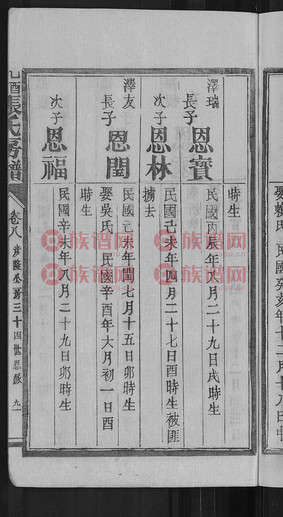 時生
澤瑞
長子
恩賓
民國丙辰年六月二十九日戌時生
次子
恩林
民國己未年四月二十七日酉時生被匪
擄去
澤友
長子
恩閏
民國己未年閏七月十五日卯時生
娶吳氏民國辛酉年六月初一日酉
時生
次子
恩福
民國辛未年八月二十九日卯時生
乙酉張氏房譜
卷八
彦隆公房三十四世恩派
九
族譜网
族譜网
族譜网
族譜网